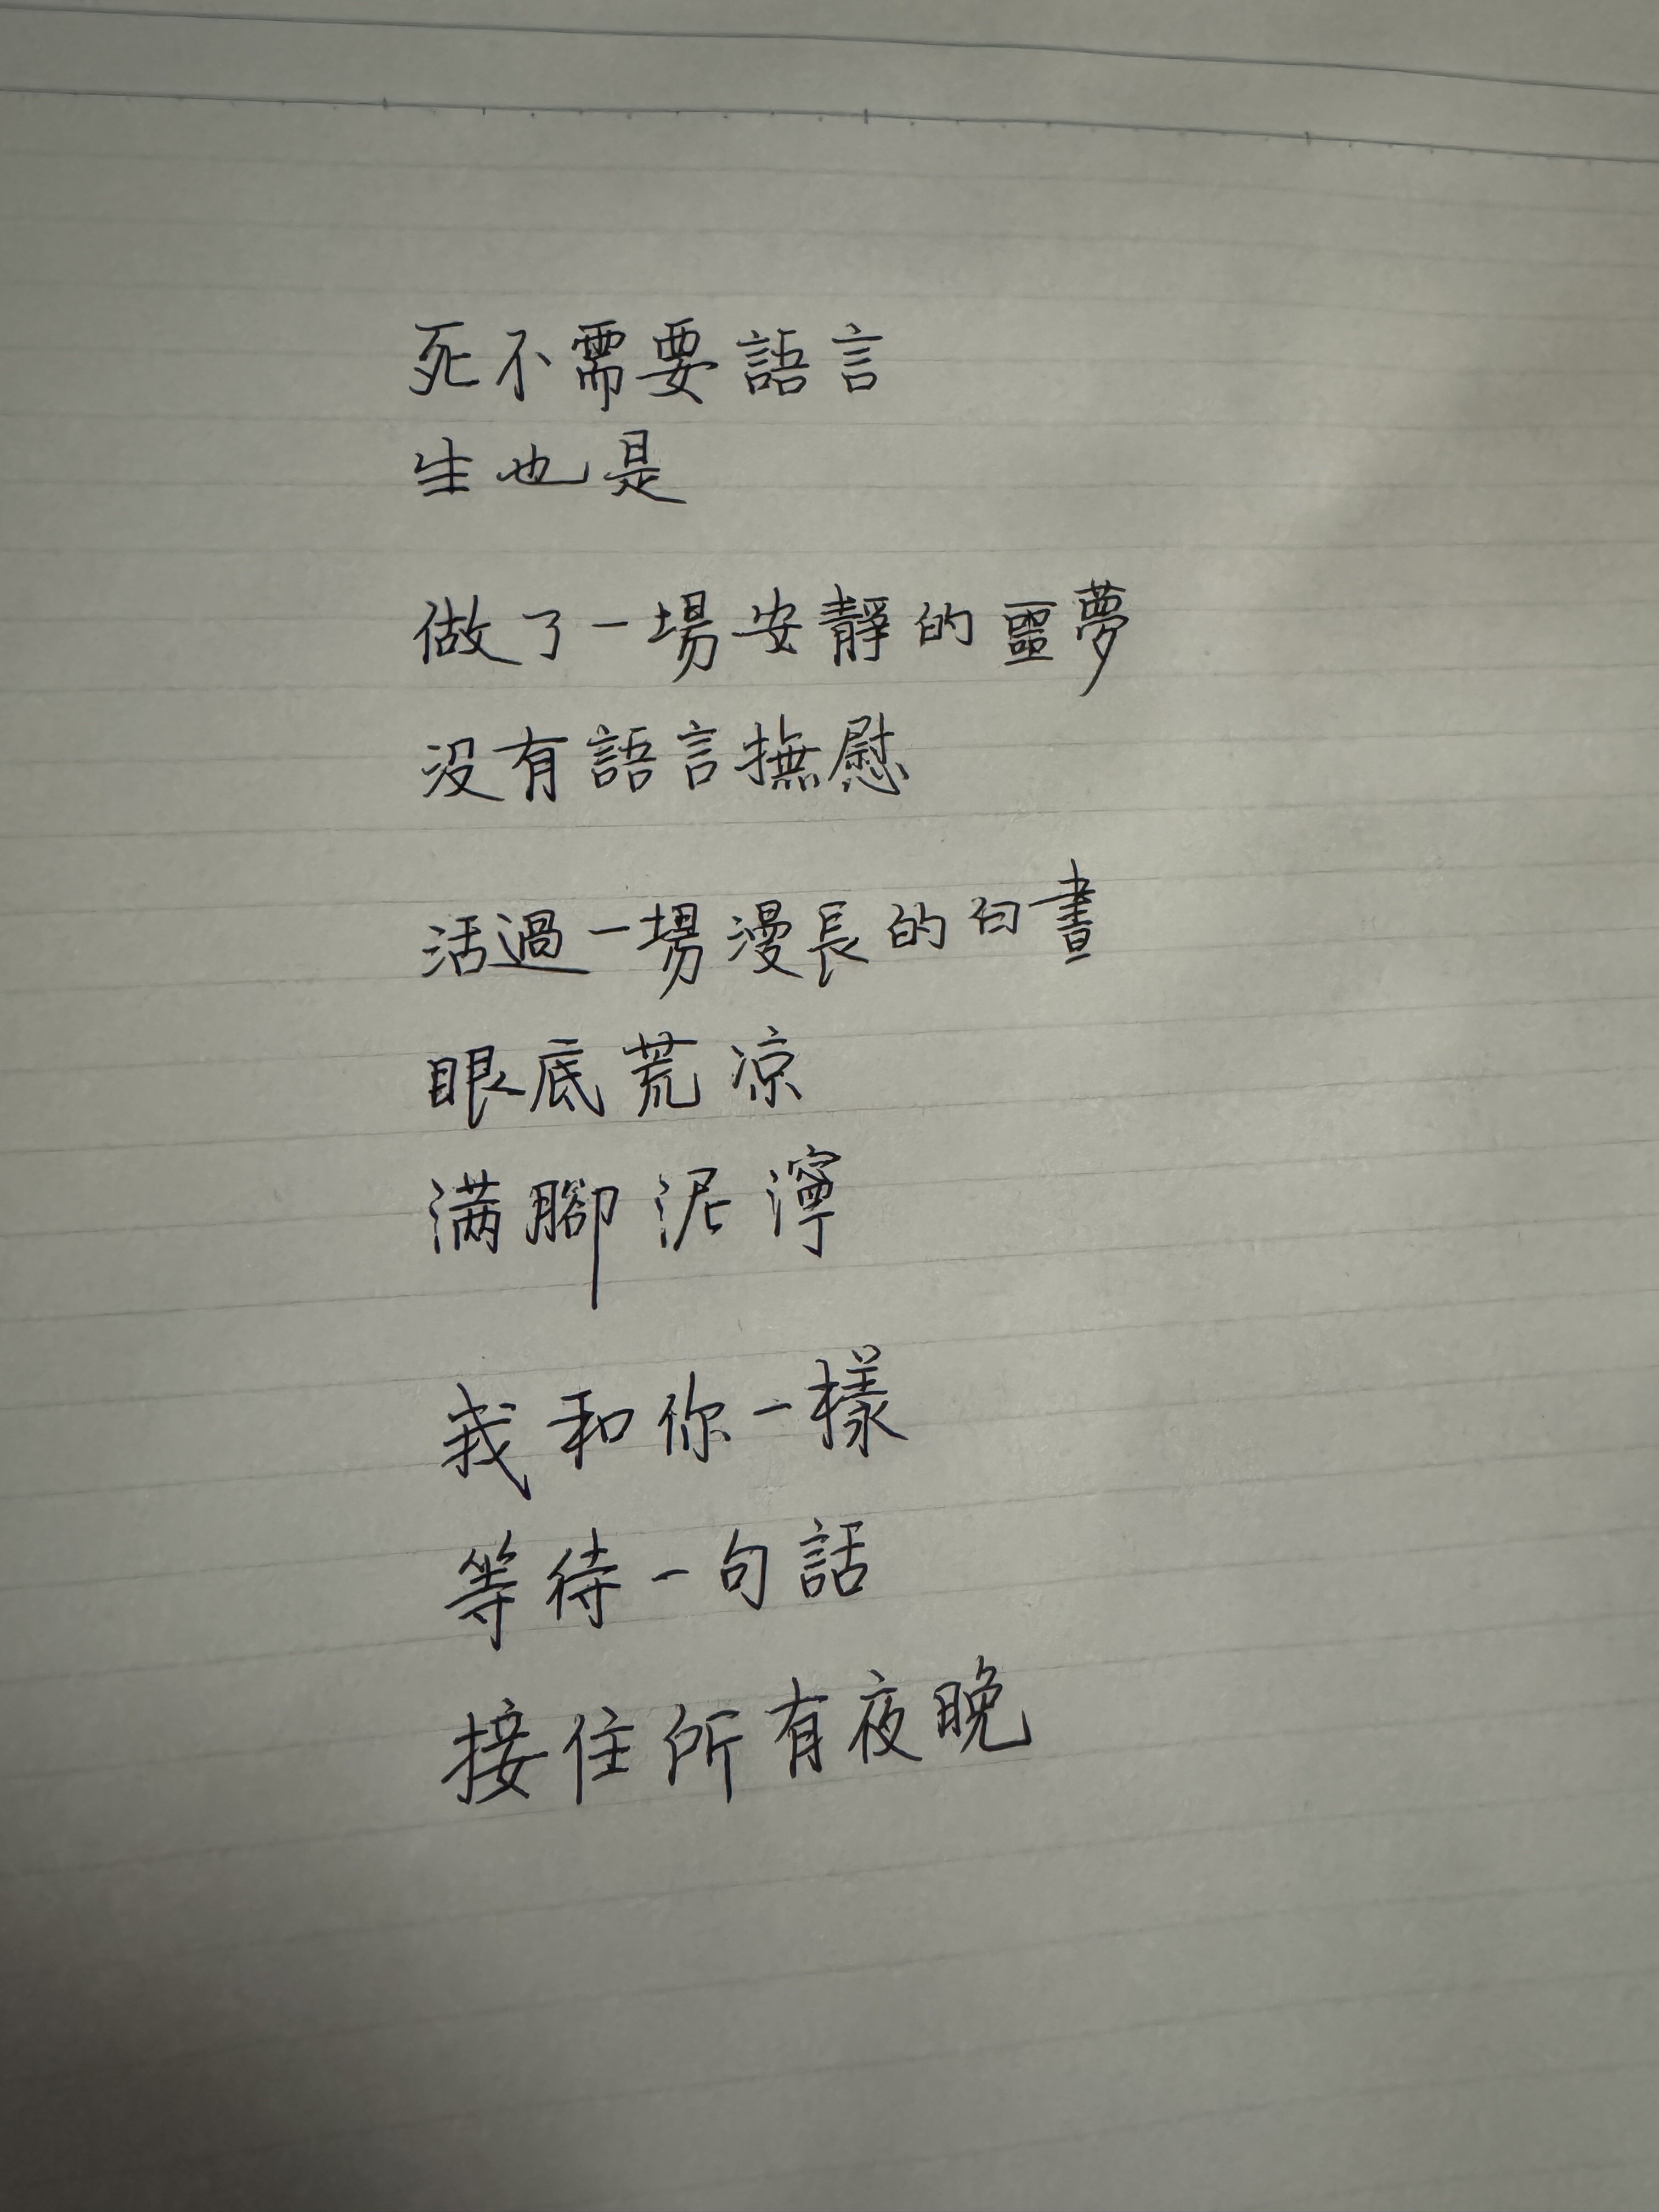 死不需要語言
生也是
做了一場安靜的噩夢
沒有語言撫慰
活過一場漫長的白晝
眼底荒凉
满腳泥濘
我和你一樣
等待一句話
接住所有夜晚